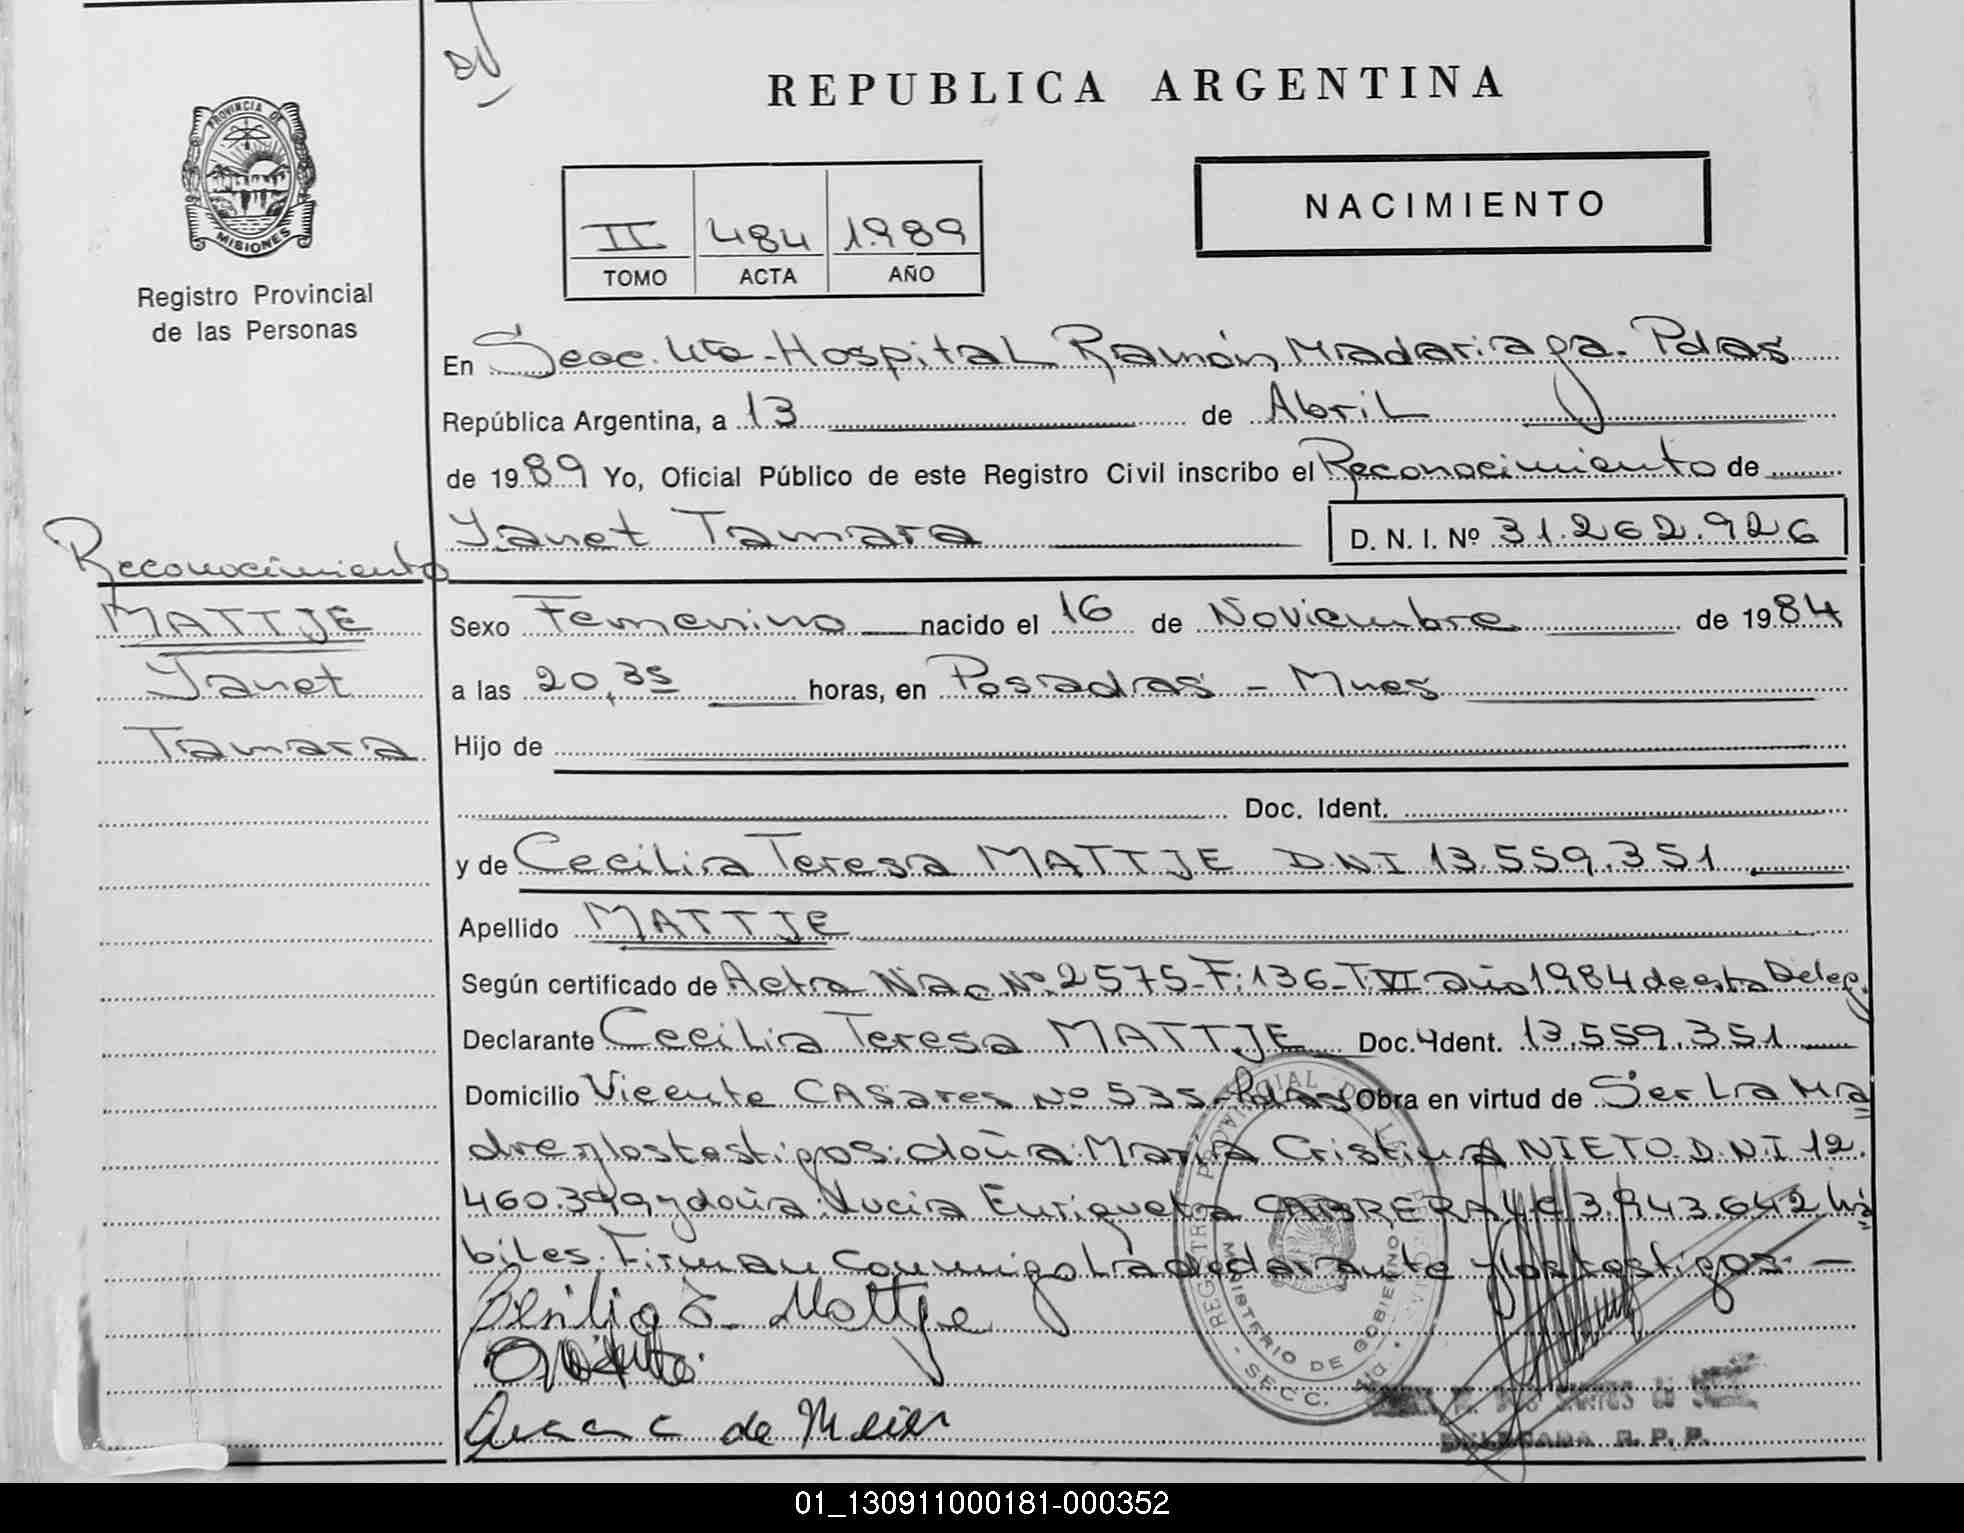 REPUBLICA ARGENTINA
PROVINCIA DE
MISIONES
Registro Provincial
de las Personas
NACIMIENTO
II 484 1.989
TOMO ACTA AÑO
En Secc. 4ta-Hospital Ramón Madariaga-Pdas
República Argentina, a 13 de Abril
de 1989 Yo, Oficial Público de este Registro Civil inscribo el Reconocimiento de
Yanet Tamara D. N. I. Nº 31.262.926
Reconocimiento
MATTJE
Yanet
Tamara
Sexo Femenino nacido el 16 de Noviembre de 1984
a las 20,35 horas, en Posadas - Mnes
Hijo de
Doc. Ident.
y de Cecilia Teresa MATTJE D.N.I 13.559.351
Apellido MATTJE
Según certificado de Acta Nac Nº 2575-F:136-T.VI año 1984 de esta Deleg.
Declarante Cecilia Teresa MATTJE Doc. Ident. 13.559.351
Domicilio Vicente CASares Nº 535-Pdas Obra en virtud de Ser La Ma
dre y los testigos: doña: María Cristina NIETO D.N.I 12.
460.399 y doña: Lucia Enriqueta CABRERA LC 3.943.642 há
biles. Firman conmigo la declarante y los testigos.-
Cecilia T. Mattje
de Meier
REGISTRO PROVINCIAL DE LAS PERSONAS
MINISTERIO DE GOBIERNO
- SECC. 4ta
DELEGADA R. P. P.
01_130911000181-000352